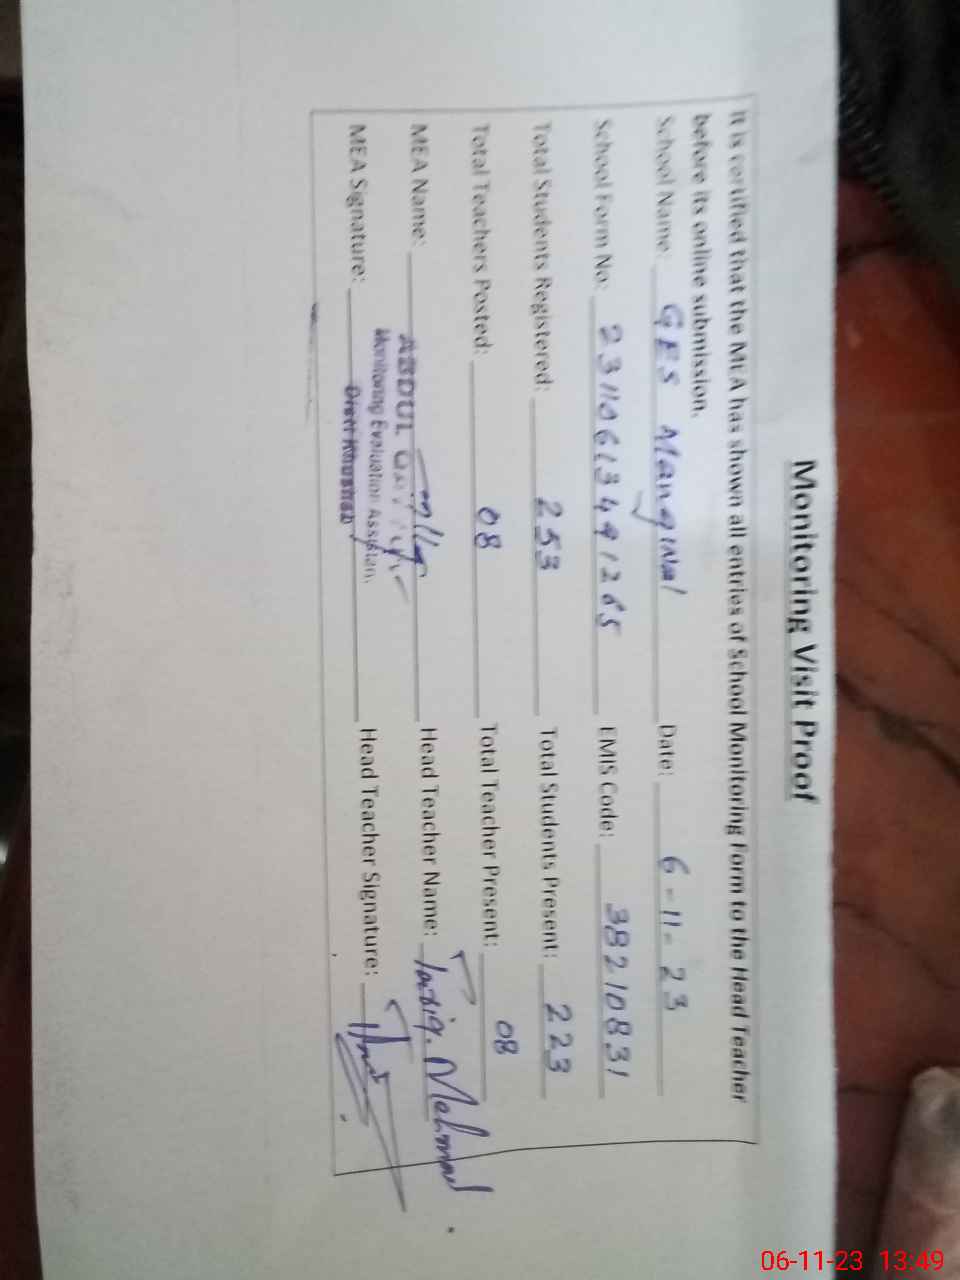 Monitoring Visit Proof
It is certified that the MEA has shown all entries of School Monitoring Form to the Head Teacher
before its online submission.
School Name: GES Mangwal Date: 6-11-23
School Form No: 2311061349 1265 EMIS Code: 38210831
Total Students Registered: 253 Total Students Present: 223
Total Teachers Posted: 08 Total Teacher Present: 08
MEA Name: ABDUL Head Teacher Name: Tariq Mehmood
Monitoring Evaluation Assistant
MEA Signature: Distt Khushab Head Teacher Signature:
06-11-23 13:49